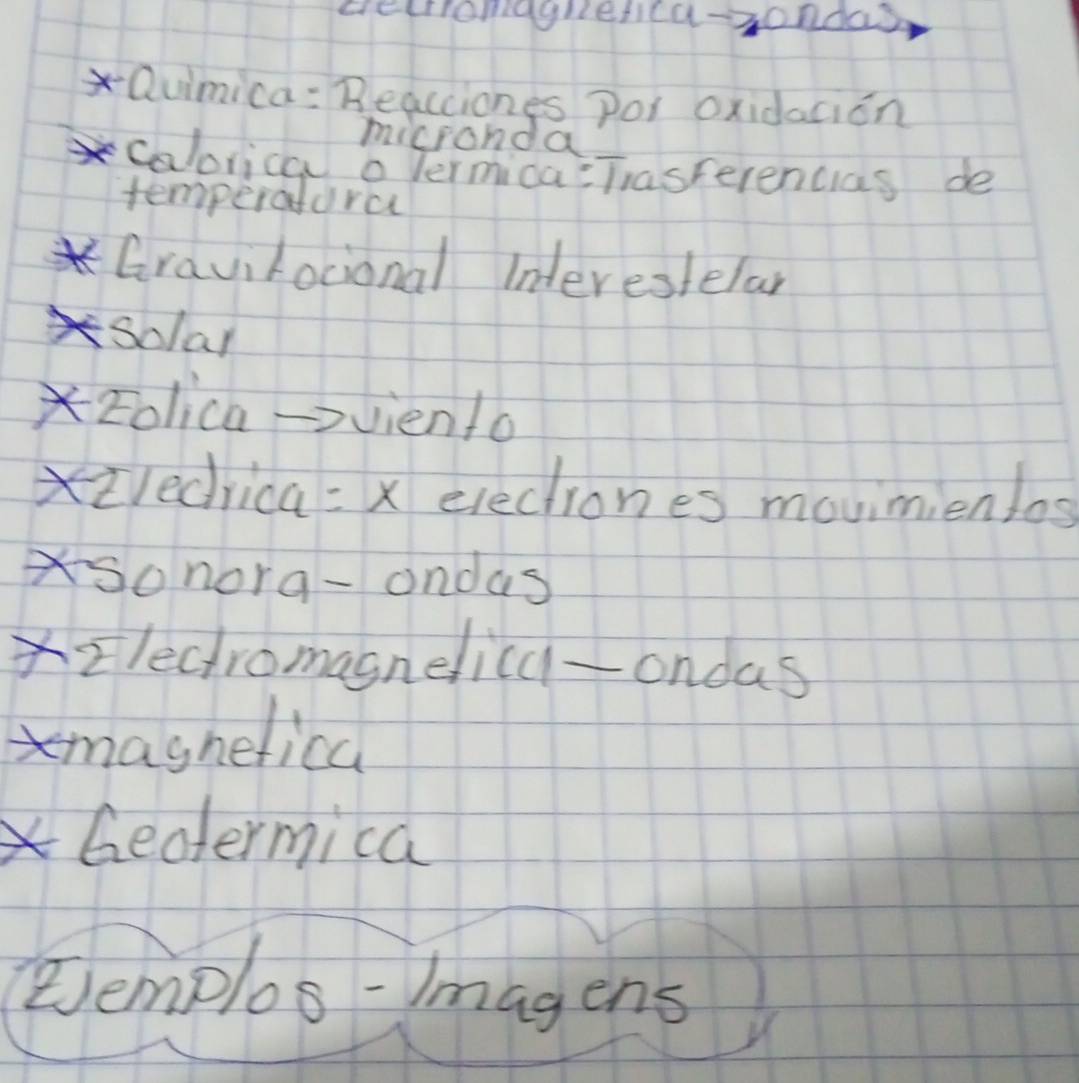 electromagnetica → ondas
* Quimica = Reacciones por oxidación
micronda
* Calorica o Termica = Trasferencias de
temperatura
* Gravitocional Interestelar
* Solar
* Eolica → viento
* Electrica = x electrones movimientos
* Sonora - ondas
* Electromagnetica - ondas
* magnetica
* Geotermica
Ejemplos - Imagens